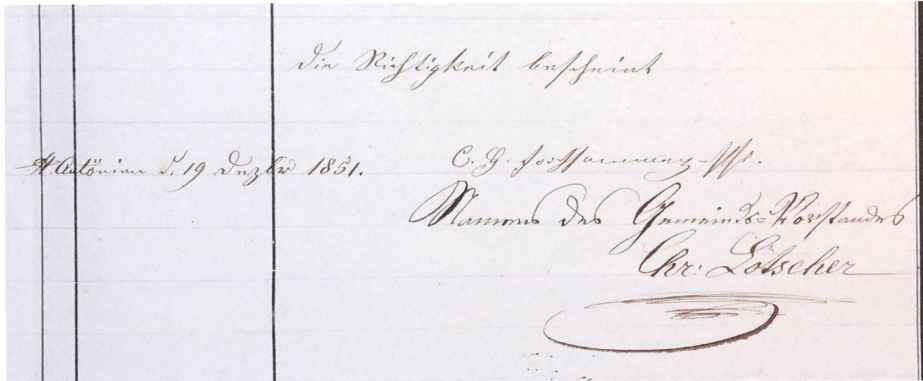 die Richtigkeit bescheint
St. Antönien d. 19 Dezbr 1851.
Namens des Gemeinds=Vorstandes
Chr: Lötscher